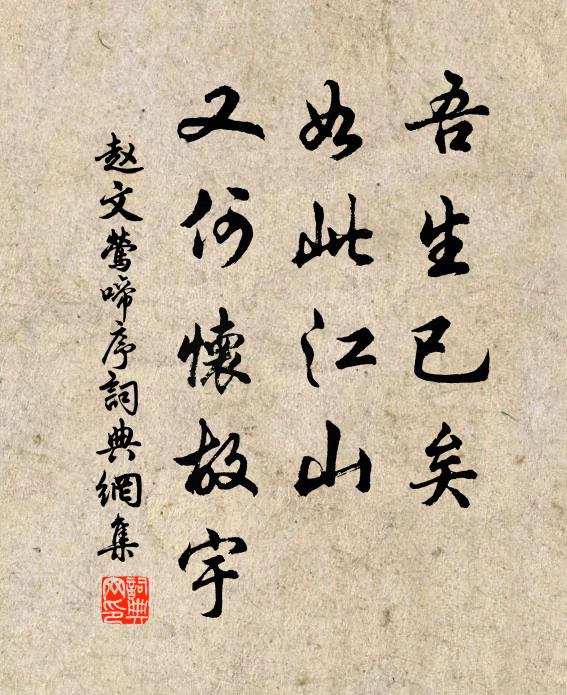 吾生已矣
如此江山
又何懷故宇
赵文鶯啼序詞典網集
詞典